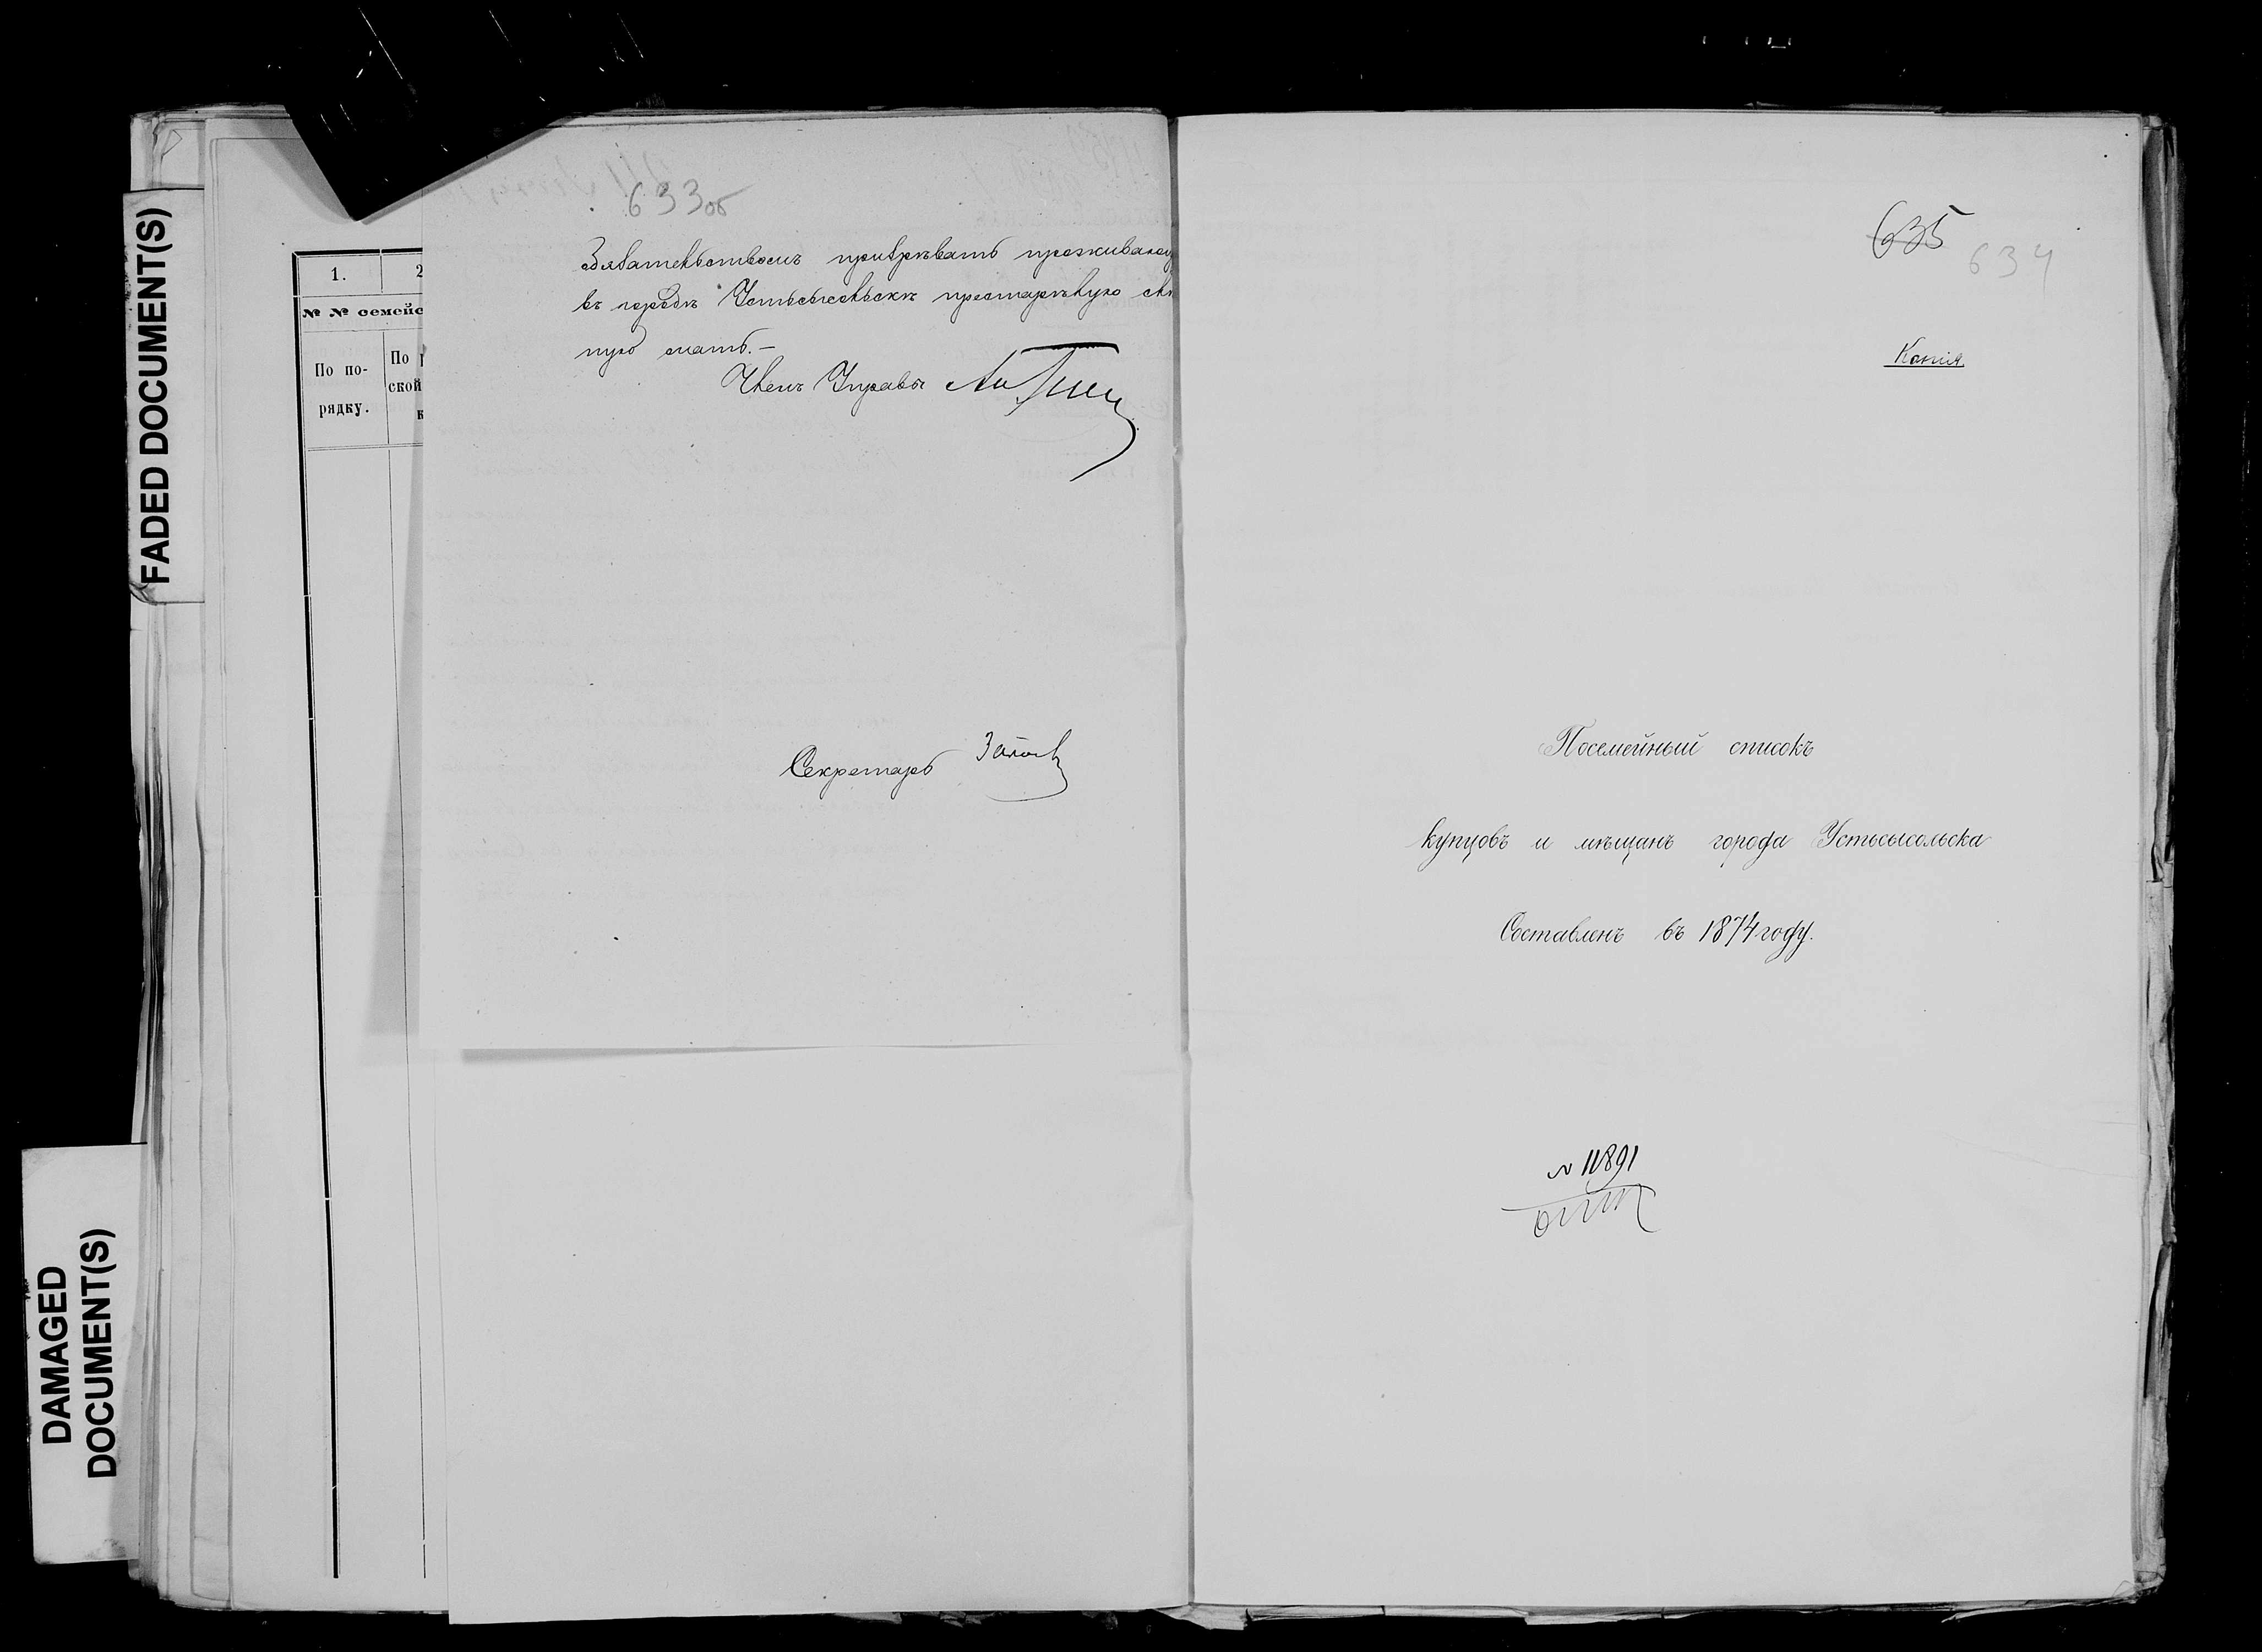 FADED DOCUMENT(S)
DAMAGED
DOCUMENT(S)
1. 2
№ № семейс
По по-
рядку.
По р
ской
к
633 об
обязательствомъ призрѣвать проживающ
въ городѣ Устьсысольскѣ престарѣлую слѣ
пую мать.—
Членъ Управы
Секретарь
635
634
Копія.
Посемейный списокъ
купцовъ и мѣщанъ города Устьсысольска
Составленъ въ 1874 году.
№ 11891